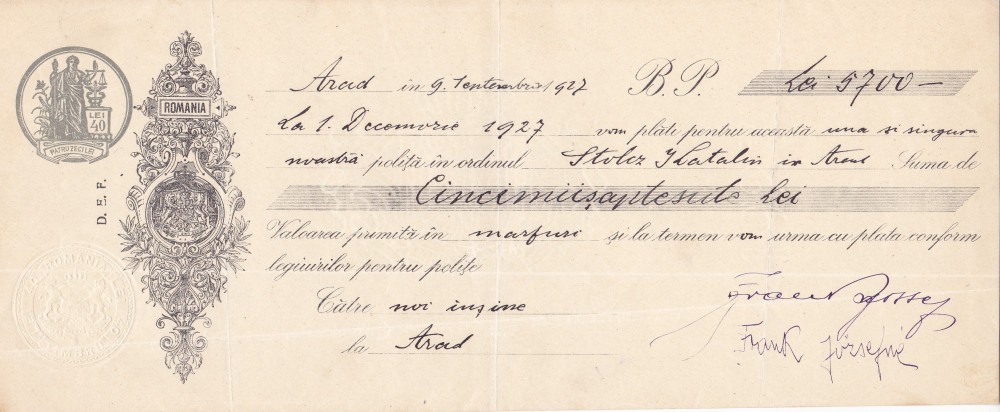 LEI
40
PATRUZECI LEI
ROMANIA
D. E. F.
Arad în 9. Septembrie 1927 B. P. Lei 5700—
La 1. Decemvrie 1927 vom plăti pentru această una si singura
noastră poliță în ordinul Stolcz Katalin in Arad Suma de
Cincimiișaptesute Lei
Valoarea primită în marfuri și la termen vom urma cu plata conform
legiuirilor pentru polițe
Către noi inșine
la Arad
Frank József
Frank Józsefné